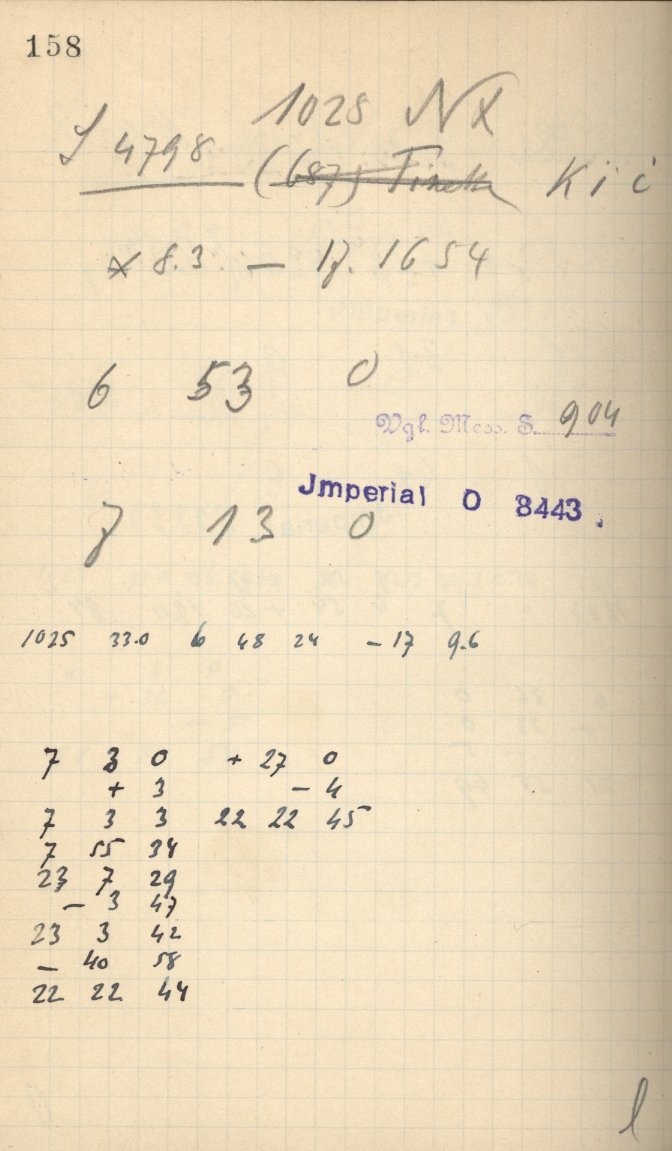 158
1028 NX
J 4798 (687) Kić
8.3 — 17. 1654
6 53 0
Vgl. Mess. S. 904
Jmperial O 8443.
7 13 0
1025 33.0 6 48 24 - 17 9.6
7 3 0 + 27 0
+ 3 - 4
7 3 3 22 22 45
7 55 34
23 7 29
- 3 47
23 3 42
- 40 58
22 22 44
l